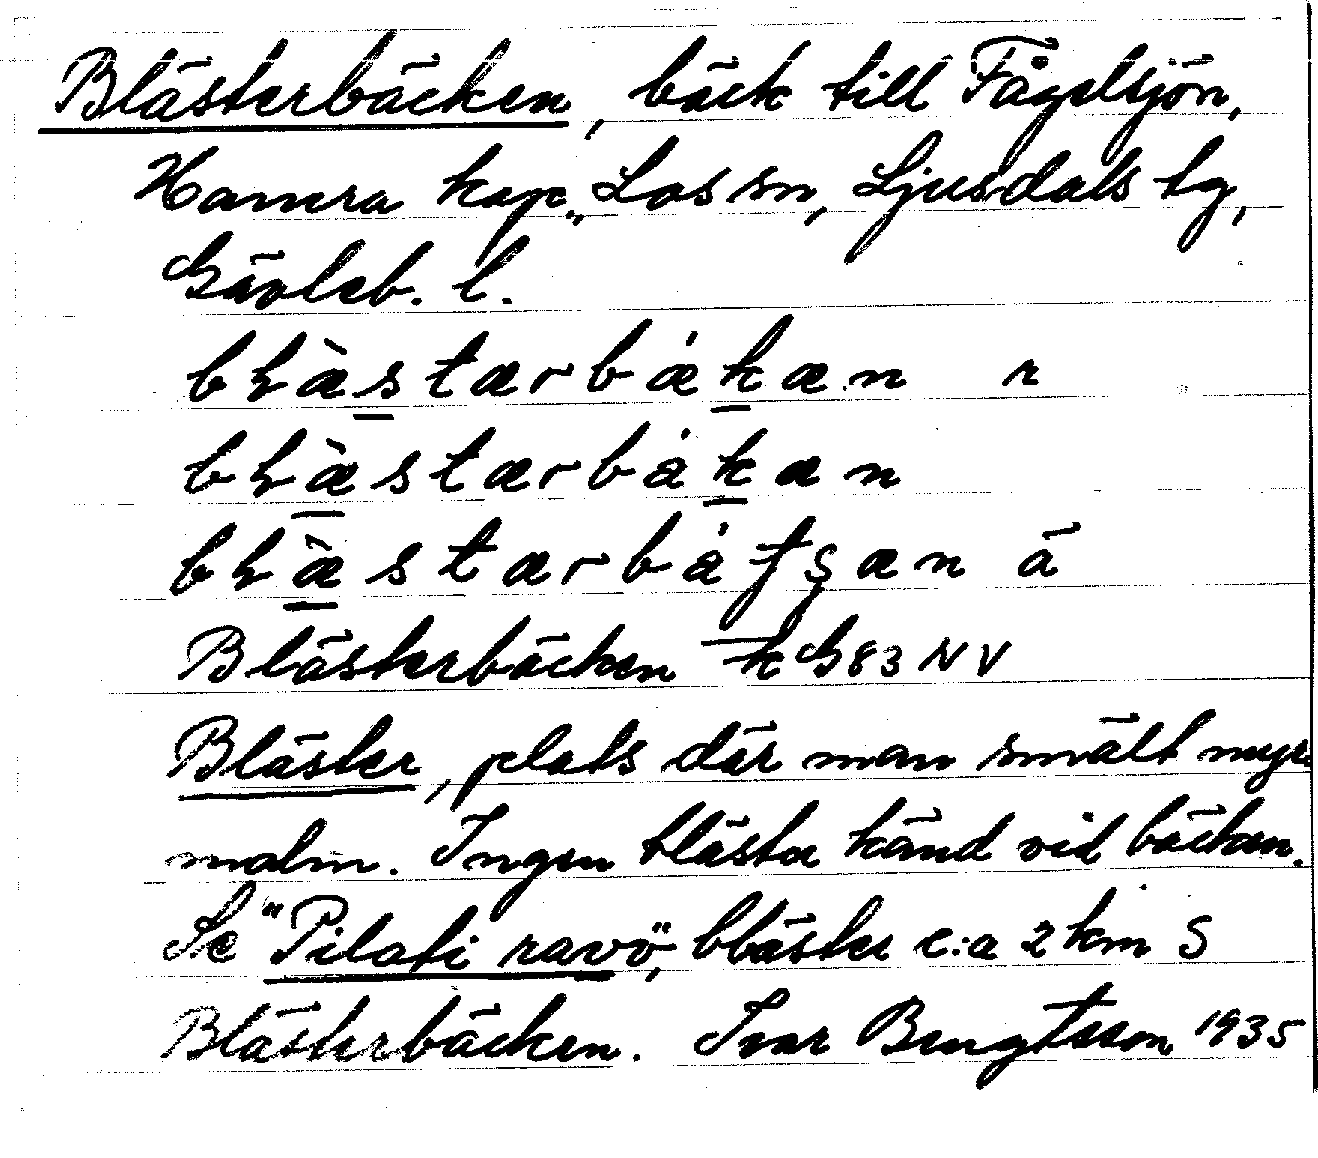 Blästerbäcken, bäck till Fågelsjön,
Hamra kap., Los sn, Ljusdals tg,
Gävleb. l.
bḷæ̀stærbákæn r
bḷæ̀stærbákæn
bḷæ̀stærbáțşæn ä
Blästerbäcken k G83 NV
Bläster, plats där man smält myr-
malm. Ingen bläster känd vid bäcken.
Se "Pilati ravö", bläster c:a 2 km S
Blästerbäcken. Ivar Bengtsson 1935